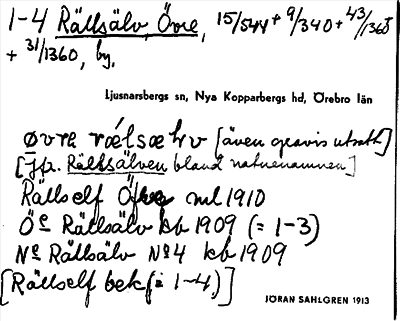 1-4 Rällsälv, Övre, 15/544 + 9/340 + 43/1365
+ 31/1360, by.
Ljusnarsbergs sn, Nya Kopparbergs hd, Örebro län
øvra rælsælv [även gravis uttalt]
[Jfr. Rällsälven bland naturnamnen]
Rällself Öfre ml 1910
Ö^e Rällsälv kb 1909 (= 1-3)
N^e Rällsälv N^o 4 kb 1909
[Rällself bek (= 1-4)]
JÖRAN SAHLGREN 1913